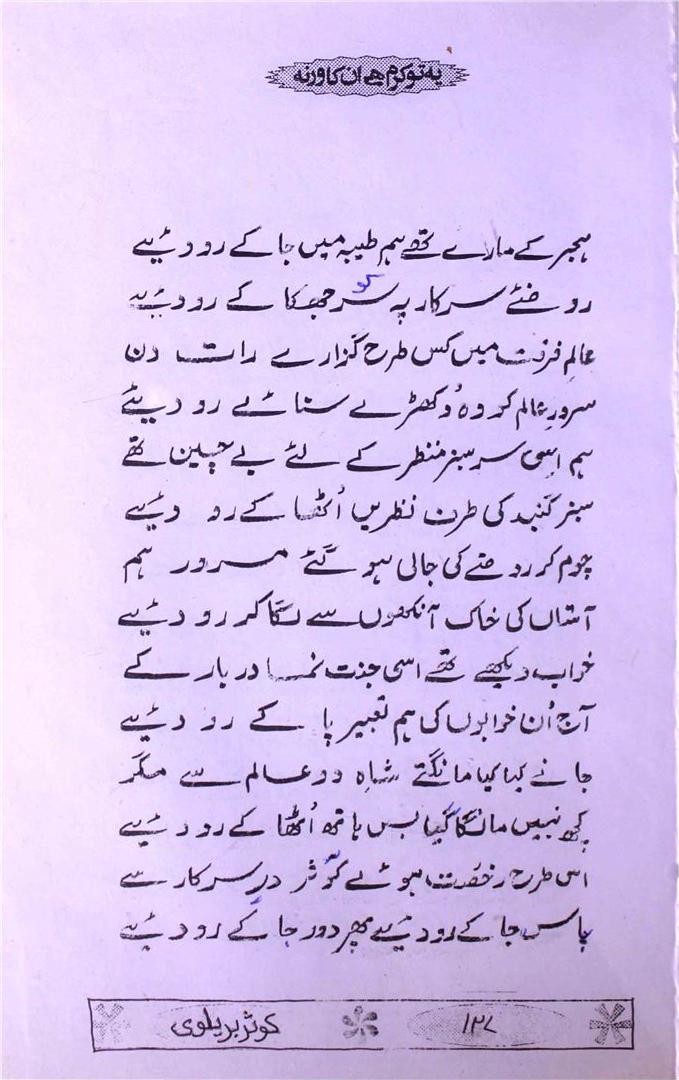 یہ تو کرم ہے ان کا ورنہ
ہجر کے مارے تھے ہم طیبہ میں جا کے رو دیئے
روضئے سرکار پہ سر کو جھکا کے رو دیئے
عالمِ فرقت میں کس طرح گزارے رات دن
سرورِ عالم کو وہ دُکھڑے سنائے رو دیئے
ہم اسی سرسبز منظر کے لئے بے چین تھے
سبز گنبد کی طرف نظریں اُٹھا کے رو دیئے
چوم کر روضے کی جالی ہو گئے مسرور ہم
آستاں کی خاک آنکھوں سے لگا کر رو دیئے
خواب دیکھے تھے اسی جنت نما دربار کے
آج اُن خوابوں کی ہم تعبیر پا کے رو دیئے
جانے کیا کیا مانگتے شاہِ دو عالم سے مگر
کچھ نہیں مانگا گیا بس ہاتھ اُٹھا کے رو دیئے
اس طرح رخصت ہوئے کوثر درِ سرکار سے
پاس جا کے رو دیئے پھر دور جا کے رو دیئے
۱۳۷ کوثر بریلوی